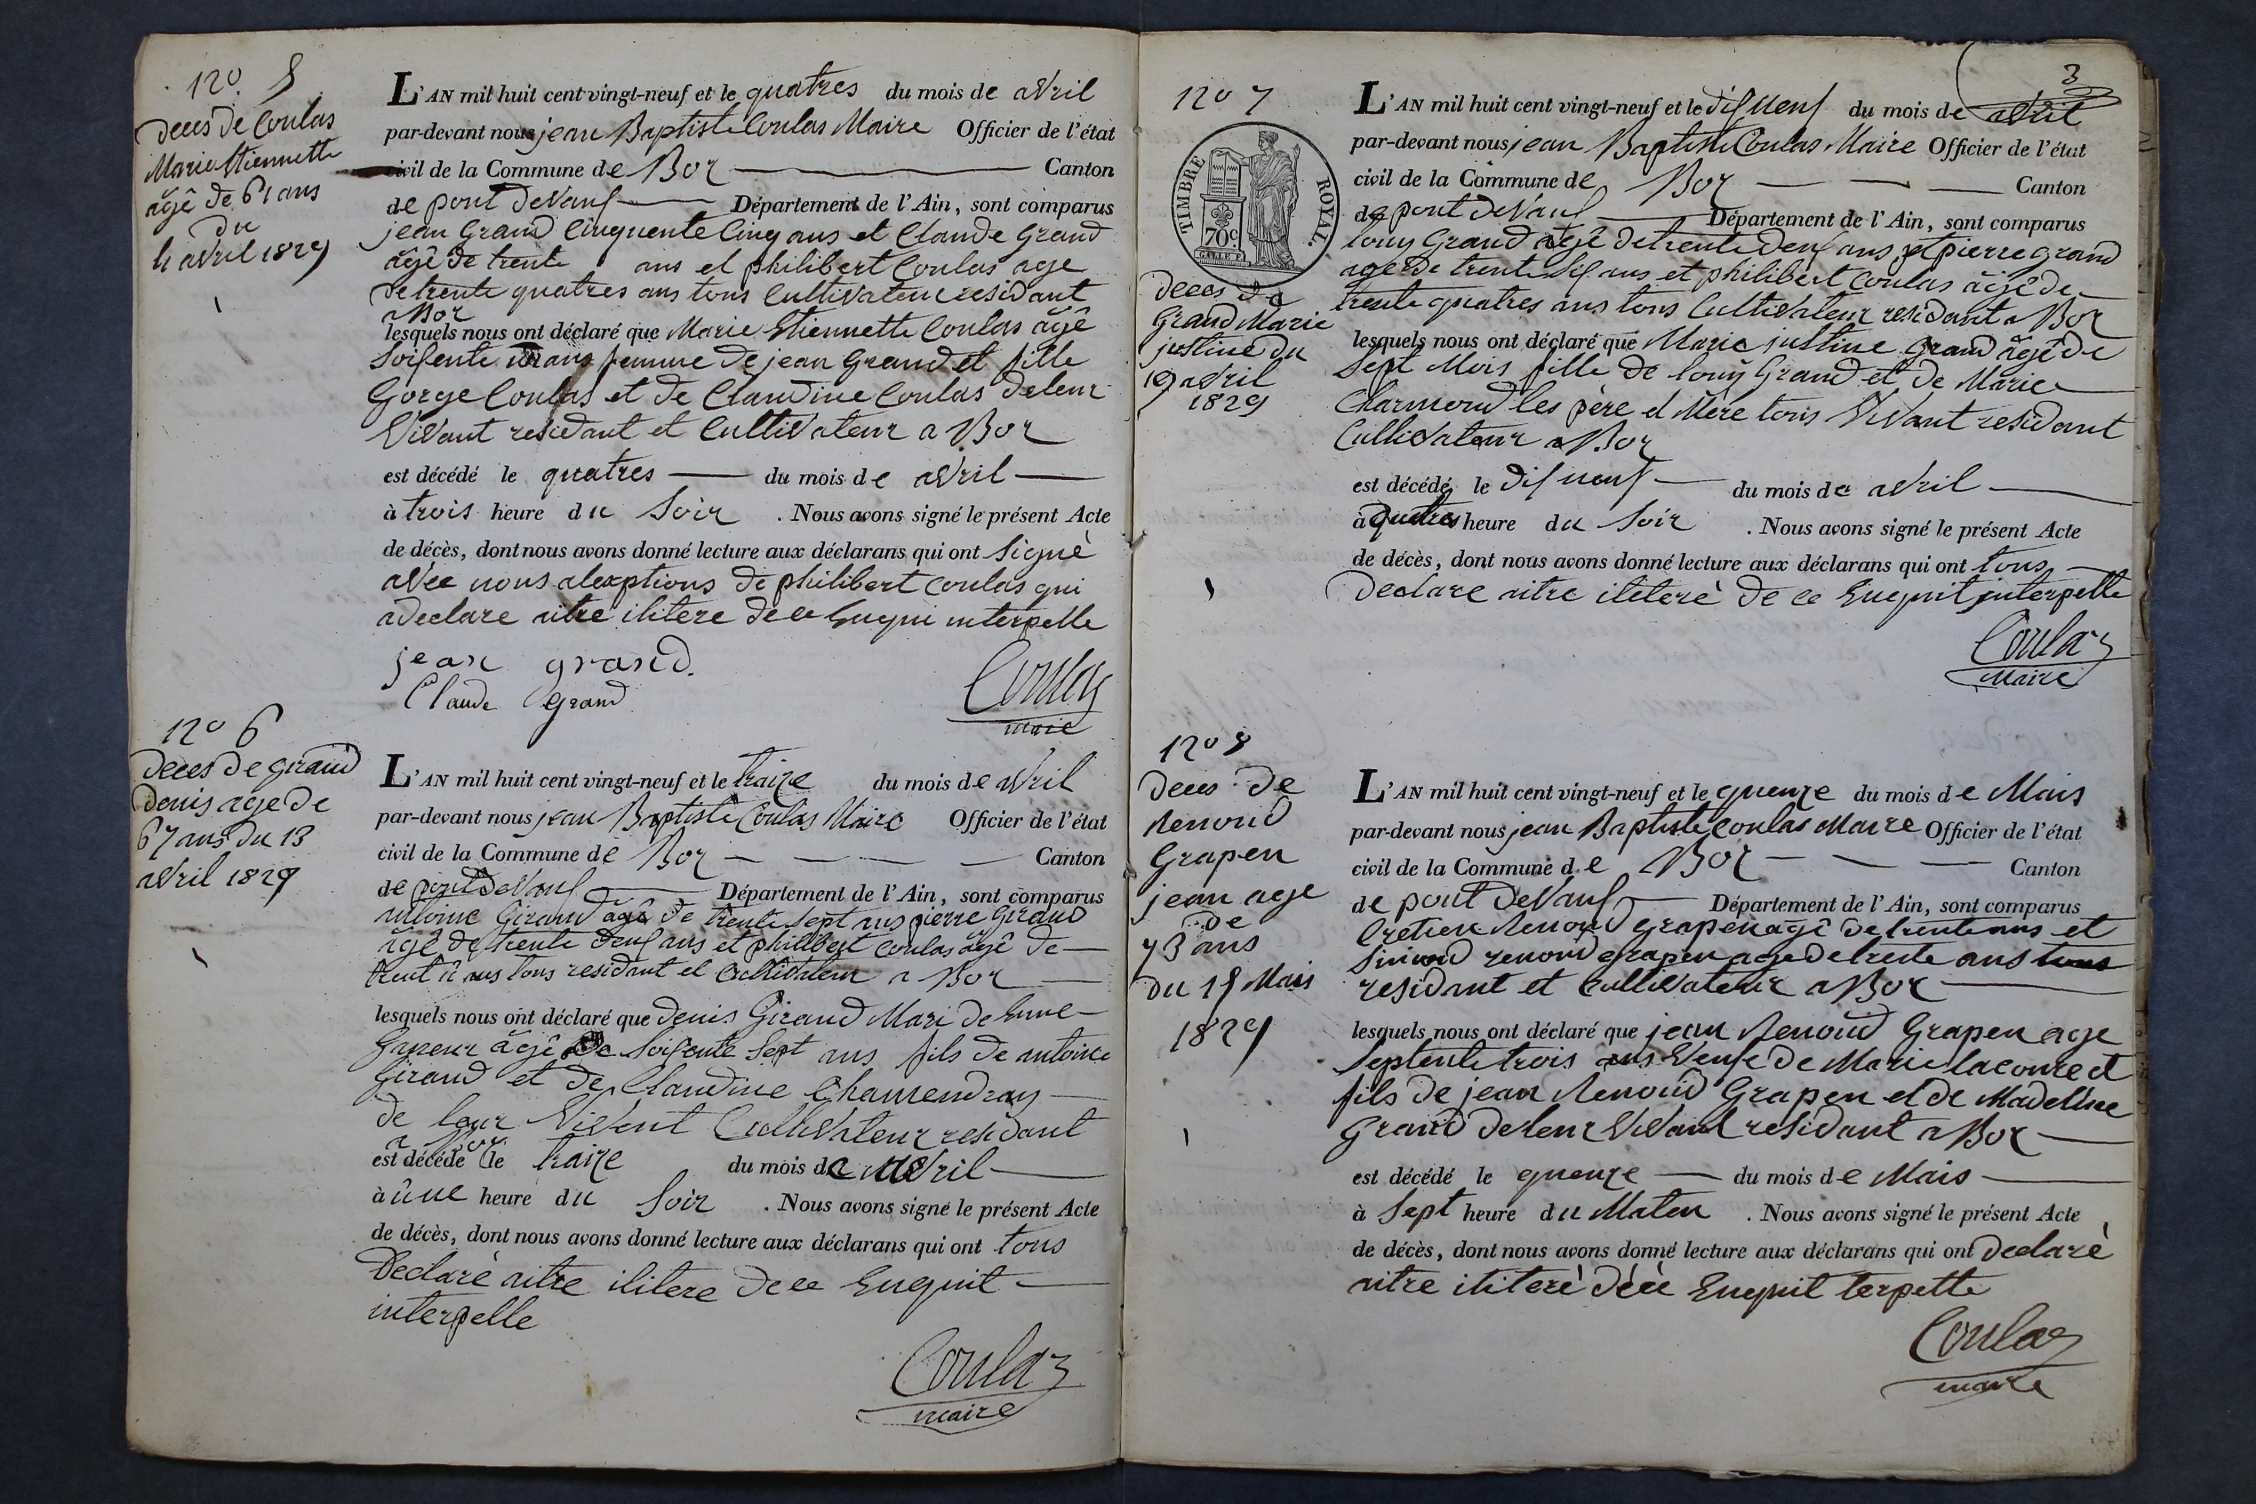 N° 5
deces de Coulas
Marie Etiennette
âgê de 61 ans
du
4 avril 1829
L'AN mil huit cent vingt-neuf et le quatres du mois de avril
par-devant nous jean Baptiste Coulas Maire Officier de l'état
civil de la Commune de Boz Canton
de pont deVaux Département de l'Ain, sont comparus
jean Grand Cinquente Cinq ans et Claude Grand
âgê de trente ans et philibert Coulas age
de trente quatres ans tous Cultivateur residant
a Boz
lesquels nous ont déclaré que Marie Etiennette Coulas âgê
Soisente un ans femme de jean Grand et fille
Gorge Coulas et de Claudine Coulas de leur
Vivant residant et Cultivateur a Boz
est décédé le quatres du mois de avril
à trois heure du Soir . Nous avons signé le présent Acte
de décès, dont nous avons donné lecture aux déclarans qui ont Signè
avec nous alexptions de philibert Coulas qui
a declare aitre ilitere de ce Enqui interpelle
jean grand.
Claude Grand
Coulas
maire
N° 6
deces de giraud
denis age de
67 ans du 13
avril 1829
L'AN mil huit cent vingt-neuf et le traize du mois de avril
par-devant nous jean Baptiste Coulas Maire Officier de l'état
civil de la Commune de Boz Canton
de pont deVaux Département de l'Ain, sont comparus
antoine Giraud âgê de trente sept ans pierre Giraud
âgê de trente deux ans et philibert Coulas âgê de
ans tous residant et Cultivateur a Boz
lesquels nous ont déclaré que denis Giraud Mari de
âgê de Soisente Sept ans fils de antoine
Giraud et de Claudine
de leur Vivent Cultivateur residant
a Boz
est décédé le traize du mois de avril
à ûne heure du Soir . Nous avons signé le présent Acte
de décès, dont nous avons donné lecture aux déclarans qui ont tous
Declarè aitre ilitere de ce Enquit
interpelle
Coulas
maire
3
N° 7
TIMBRE ROYAL.
70c
deces de
Grand Marie
justine du
19 avril
1829
L'AN mil huit cent vingt-neuf et le dis neuf du mois de avril
par-devant nous jean Baptiste Coulas Maire Officier de l'état
civil de la Commune de Boz Canton
de pont deVaux Département de l'Ain, sont comparus
louy Grand âgê de trente deux ans et pierre grand
age de trente six ans et philibert Coulas âigê de
trente quatres ans tous Cultivateur residant a Boz
lesquels nous ont déclaré que Marie justine Grand âgê de
Sept Mois fille de louy Grand et de Marie
Charmond les père et Mère tous Vivant residant
Cultivateur a Boz
est décédé le dis neuf du mois de avril
à quatres heure du Soir . Nous avons signé le présent Acte
de décès, dont nous avons donné lecture aux déclarans qui ont tous
declare aitre ilitere de ce Enquit interpelle
Coulas
Maire
N° 8
deces de
Renoud
Grapen
jean age
de
73 ans
du 15 Mais
1829
L'AN mil huit cent vingt-neuf et le quenze du mois de Mais
par-devant nous jean Baptiste Coulas Maire Officier de l'état
civil de la Commune de Boz Canton
de pont deVaux Département de l'Ain, sont comparus
Cretien Renoud Grapen âgê de trente ans et
renoud grapen age de trente ans tous
residant et Cultivateur a Boz
lesquels nous ont déclaré que jean Renoud Grapen age
Septente trois ans Veufe de Marie lacoure et
fils de jean Renoud Grapen et de Madeleine
Grand de leur Vivant residant a Boz
est décédé le quenze du mois de Mais
à Sept heure du Maten . Nous avons signé le présent Acte
de décès, dont nous avons donné lecture aux déclarans qui ont declarè
aitre iliterè Enquit terpelle
Coulas
maire